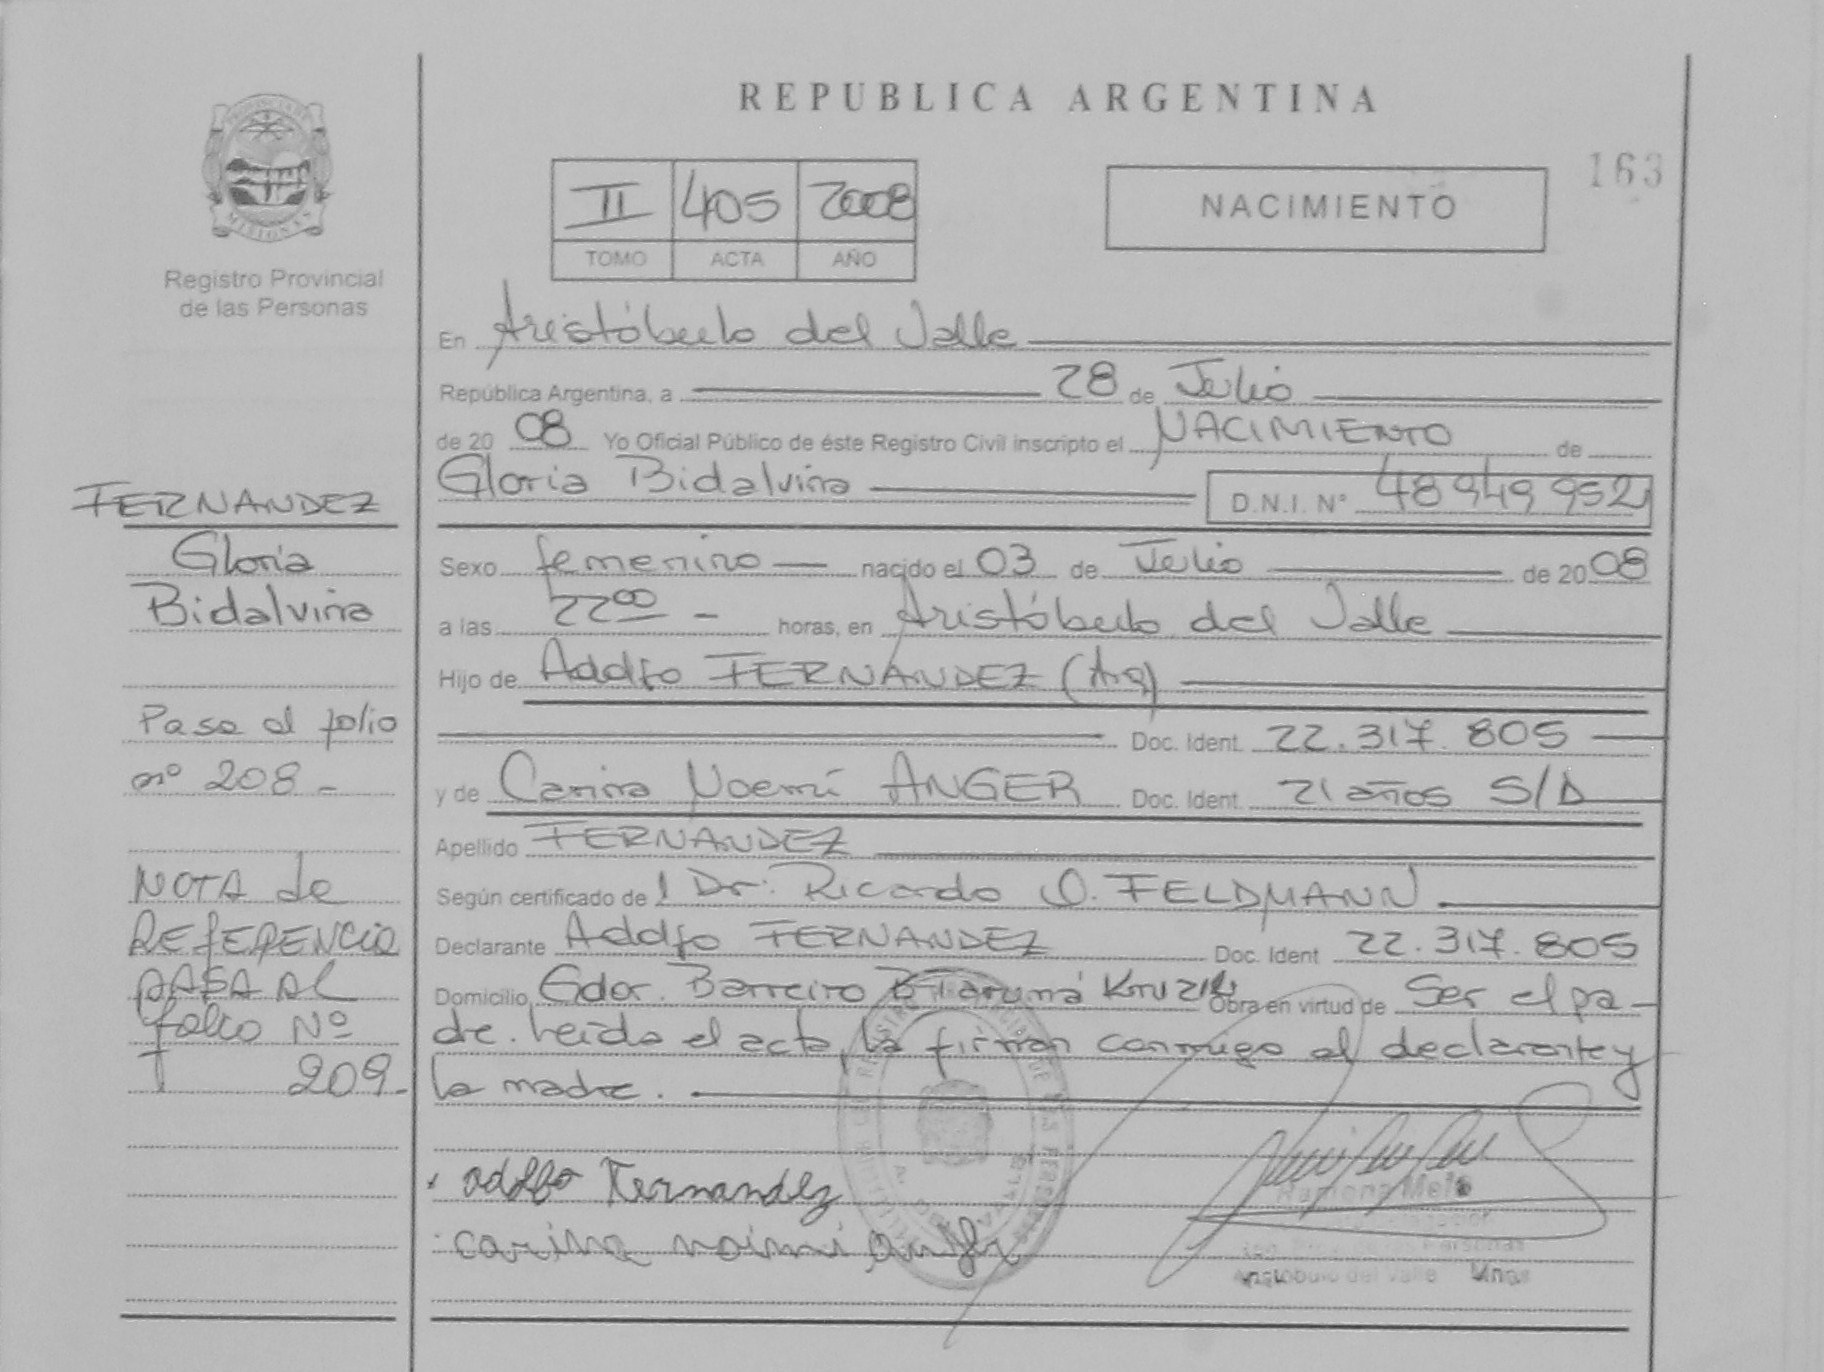 REPUBLICA ARGENTINA
163
II 405 2008
TOMO ACTA AÑO
NACIMIENTO
PROVINCIA DE
MISIONES
Registro Provincial
de las Personas
En Aristóbulo del Valle
República Argentina, a 28 de Julio
de 20 08 Yo Oficial Público de éste Registro Civil inscripto el NACIMIENTO de
Gloria Bidalvina D.N.I. Nº 48949952
Sexo femenino nacido el 03 de Julio de 20 08
a las 22 00 horas, en Aristóbulo del Valle
Hijo de Adolfo FERNANDEZ (Arg)
Doc. Ident. 22.317.805
y de Carina Noemí ANGER Doc. Ident. 21 años S/D
Apellido FERNANDEZ
Según certificado de l Dr. Ricardo O. FELDMANN
Declarante Adolfo FERNANDEZ Doc. Ident 22.317.805
Domicilio Gdor. Barreiro Bº Obra en virtud de Ser el pa-
dre. Leída el acta, la firman conmigo el declarante y
la madre.
adolfo Fernandez
carina noimi
Ramona Melo
Aristóbulo del Valle Mnes
FERNANDEZ
Gloria
Bidalvina
Pasa al folio
nº 208-
NOTA de
REFERENCIA
PASA AL
folio Nº
209-